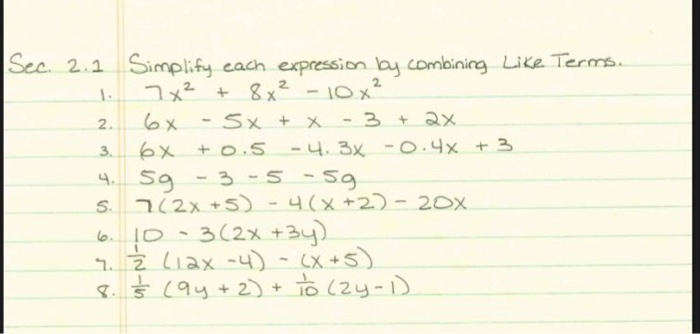 Sec. 2.1 Simplify each expression by combining Like Terms.
1. 7x² + 8x² - 10x²
2. 6x - 5x + x - 3 + 2x
3. 6x + 0.5 - 4.3x - 0.4x + 3
4. 5g - 3 - 5 - 5g
5. 7(2x+5) - 4(x+2) - 20x
6. 10 - 3(2x+3y)
7. 1/2 (12x-4) - (x+5)
8. 1/5 (9y+2) + 1/10 (2y-1)